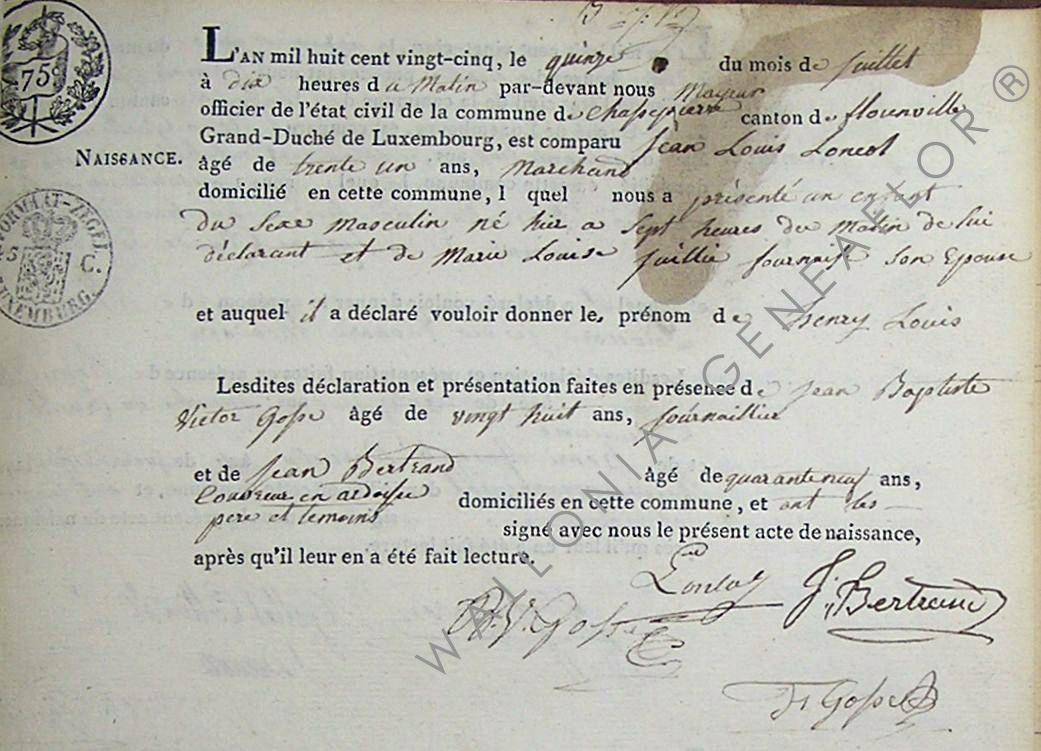 75
L'AN mil huit cent vingt-cinq, le quinze du mois de juillet
à dix heures du Matin par-devant nous Mayeur
officier de l'état civil de la commune de Chassepierre canton de flourville
Grand-Duché de Luxembourg, est comparu Jean Louis
NAISSANCE.
âgé de trente un ans, Marchand
domicilié en cette commune, l quel nous a présenté un enfant
du Sexe Masculin né hier a Sept heures du Matin de lui
déclarant et de Marie Louise fournaise Son Epouse
FORMAAT-ZEGEL
C.
LUXEMBURG.
et auquel il a déclaré vouloir donner le prénom de henry Louis
Lesdites déclaration et présentation faites en présence de Jean Baptiste
Victor Gosse âgé de vingt huit ans, journaillier
et de Jean Bertrand âgé de quarante neuf ans,
Couvreur en ardoise domiciliés en cette commune, et ont les
pere et temoins signé avec nous le présent acte de naissance,
après qu'il leur en a été fait lecture.
J. Bertrand
Gosse
Gosse
WALLONIA GENEALOR ®